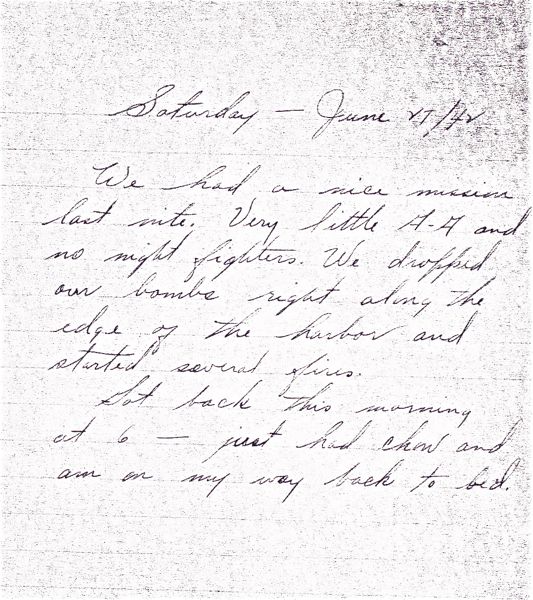 Saturday — June 27/42
We had a nice mission
last nite. Very little A-A and
no night fighters. We dropped
our bombs right along the
edge of the harbor and
started several fires.
Got back this morning
at 6 — just had chow and
am on my way back to bed.